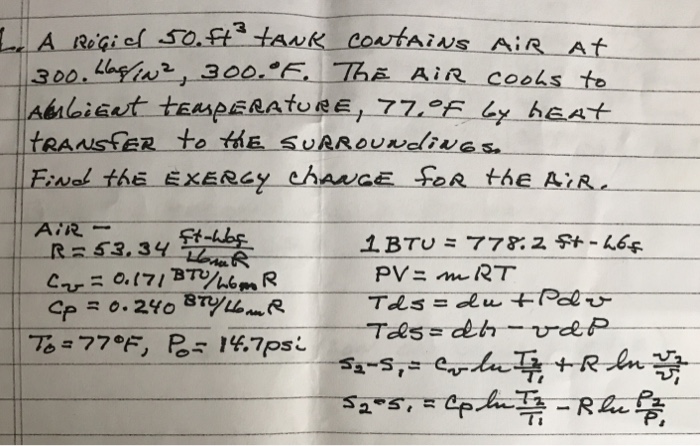 1. A RIGID 50. ft³ TANK CONTAINS AIR AT
300. Lbf/IN², 300.°F. THE AIR COOLS to
AMBIENT TEMPERATURE, 77.°F by hEAT
TRANSFER to thE SURROUNDINGS.
FINd thE EXERGY ChANGE foR thE AIR.
AIR -
R = 53.34 ft-Lbf/Lbm R
Cv = 0.171 BTU/Lbm R
Cp = 0.240 BTU/Lbm R
T₀ = 77°F, P₀ = 14.7psi
1 BTU = 778.2 ft-Lbf
PV = mRT
Tds = du + Pdv
Tds = dh - vdP
s₂-s₁ = Cv ln T₂/T₁ + R ln v₂/v₁
s₂-s₁ = Cp ln T₂/T₁ - R ln P₂/P₁